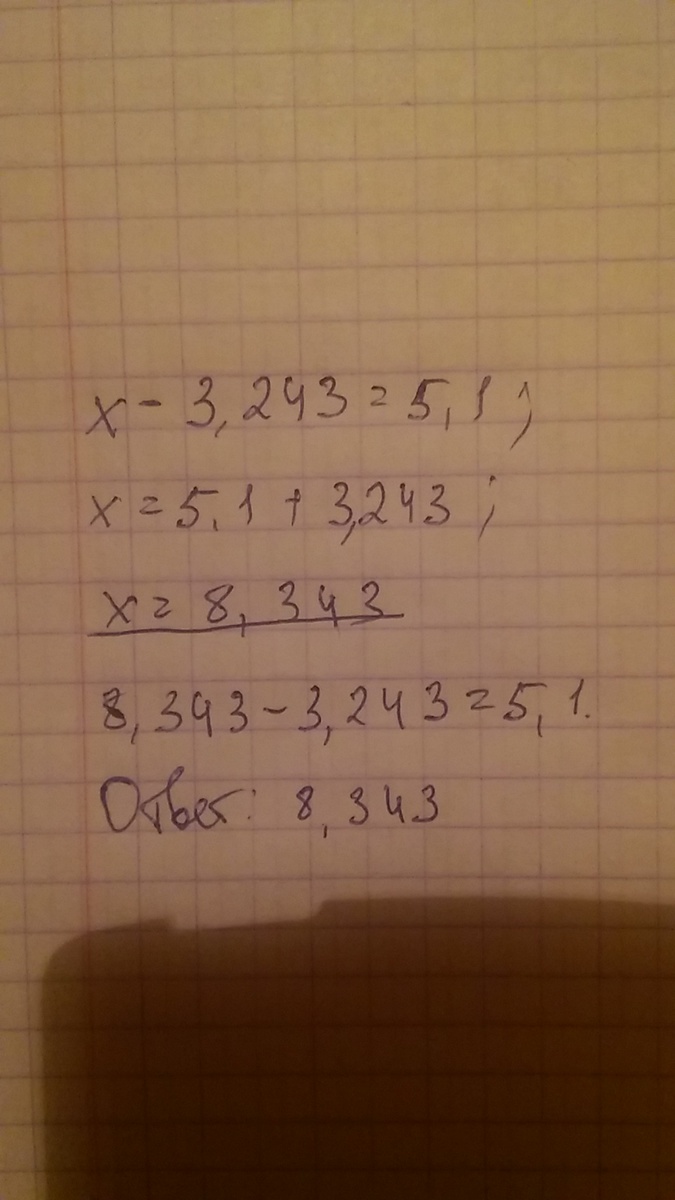 x - 3,243 = 5,1;
x = 5,1 + 3,243;
x = 8,343
8,343 - 3,243 = 5,1.
Ответ: 8,343